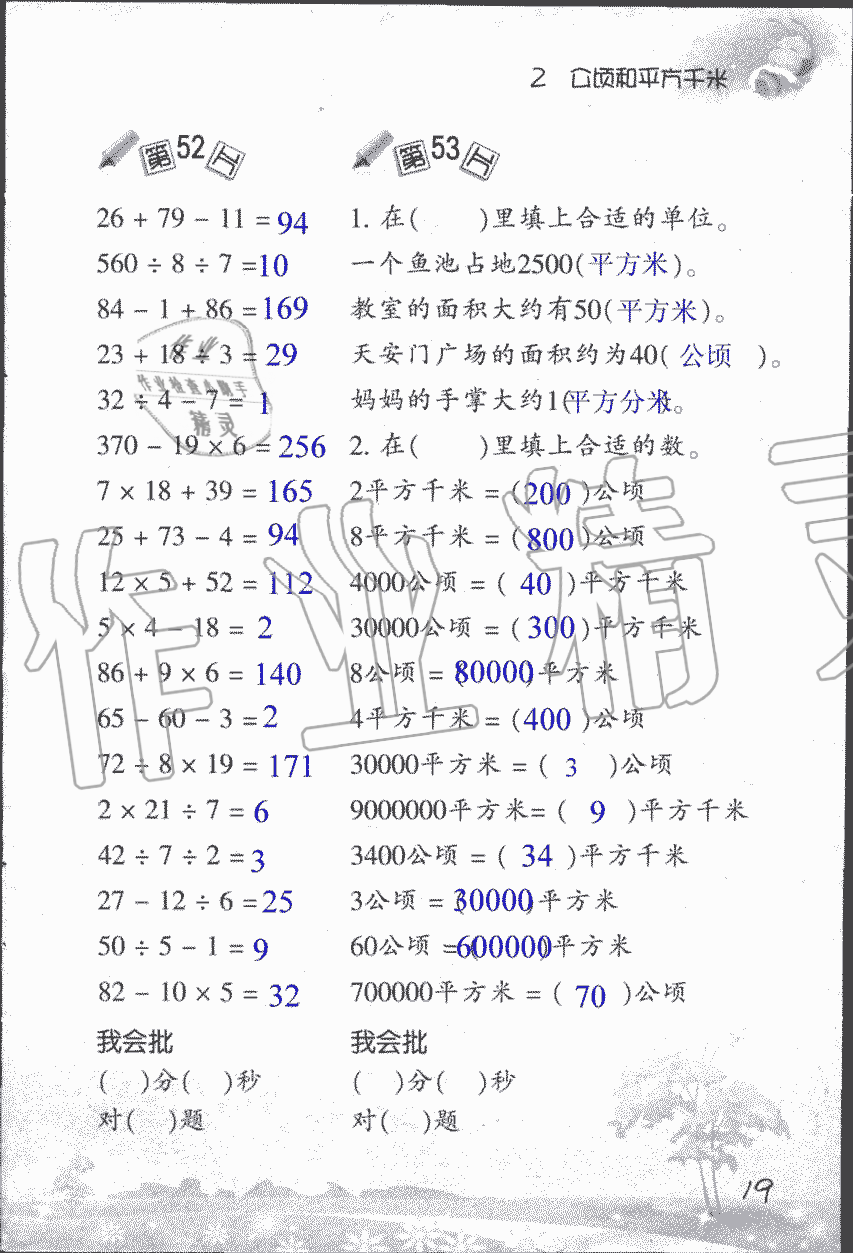 2 公顷和平方千米
第52天
26 + 79 - 11 = 94
560 ÷ 8 ÷ 7 = 10
84 - 1 + 86 = 169
23 + 18 ÷ 3 = 29
32 ÷ 4 - 7 = 1
370 - 19 × 6 = 256
7 × 18 + 39 = 165
25 + 73 - 4 = 94
12 × 5 + 52 = 112
5 × 4 - 18 = 2
86 + 9 × 6 = 140
65 - 60 - 3 = 2
72 ÷ 8 × 19 = 171
2 × 21 ÷ 7 = 6
42 ÷ 7 ÷ 2 = 3
27 - 12 ÷ 6 = 25
50 ÷ 5 - 1 = 9
82 - 10 × 5 = 32
我会批
( )分( )秒
对( )题
第53天
1. 在( )里填上合适的单位。
一个鱼池占地2500(平方米)。
教室的面积大约有50(平方米)。
天安门广场的面积约为40( 公顷 )。
妈妈的手掌大约1(平方分米)。
2. 在( )里填上合适的数。
2平方千米 = (200 )公顷
8平方千米 = (800 )公顷
4000公顷 = ( 40 )平方千米
30000公顷 = ( 300 )平方千米
8公顷 = (80000)平方米
4平方千米 = (400 )公顷
30000平方米 = ( 3 )公顷
9000000平方米= ( 9 )平方千米
3400公顷 = ( 34 )平方千米
3公顷 = (30000)平方米
60公顷 = (600000)平方米
700000平方米 = ( 70 )公顷
我会批
( )分( )秒
对( )题
作业检查小助手
精灵
作业精灵
19